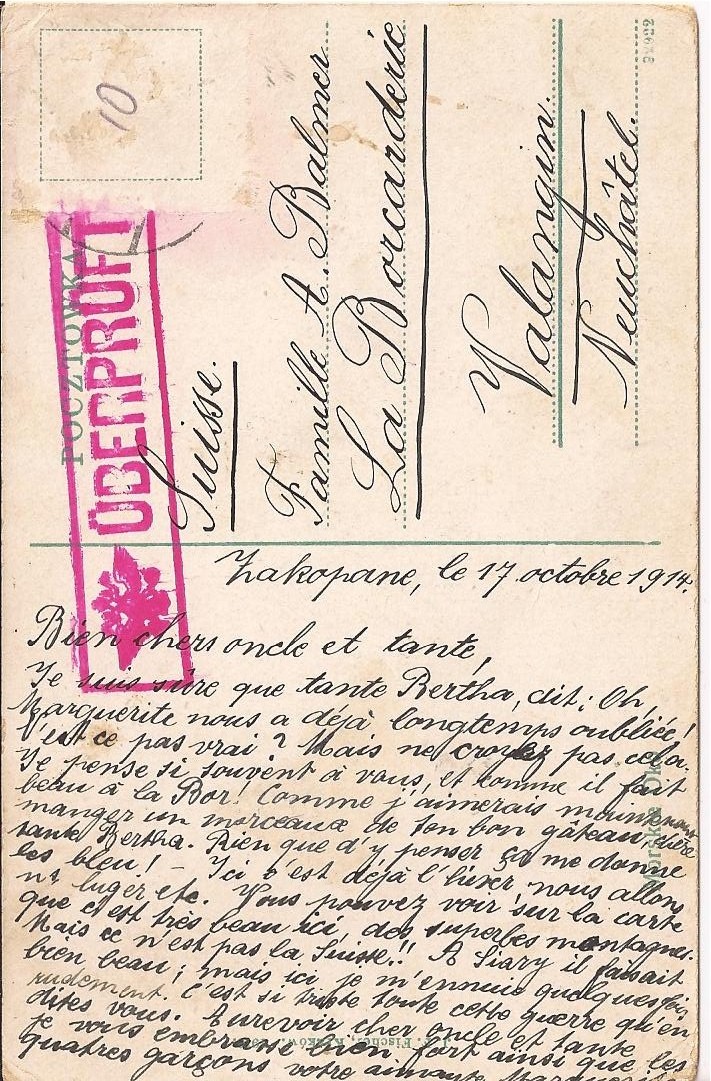 10
POCZTÓWKA
ÜBERPRÜFT
Suisse.
Famille A. Balmer
La Borcarderie
Valangin.
Neuchâtel.
Zakopane, le 17 octobre 1914.
Bien chers oncle et tante,
Je suis sûre que tante Bertha, dit: Oh,
Marguerite nous a déjà longtemps oubliée!
N'est ce pas vrai? Mais ne croyez pas cela.
Je pense si souvent à vous, et comme il fait
beau à la Bor! Comme j'aimerais maintenant
manger un morceaux de ton bon gâteau, chère
tante Bertha. Rien que d'y penser ça me donne
les bleu! – Ici c'est déjà l'hiver, nous allons
luger etc. Vous pouvez voir sur la carte
que c'est très beau ici, des superbes montagnes.
Mais ce n'est pas la Suisse!! A Siary il faisait
bien beau; mais ici je m'ennuie quelquefois
rudement. C'est si triste toute cette guerre qu'en
dites vous. Aurevoir cher oncle et tante
je vous embrasse bien fort ainsi que les
quatres garçons votre aimante